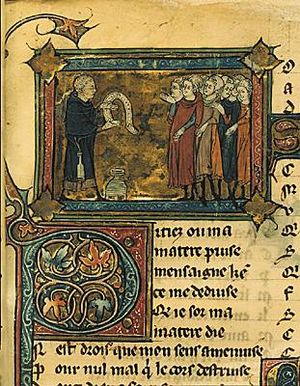 itiez ou ma
matere puise
mensaigne ke
ce me deduise
Qe ie sor ma
matere die
N est drois que mon sens amenuise
P our nul mal q le cors destruise